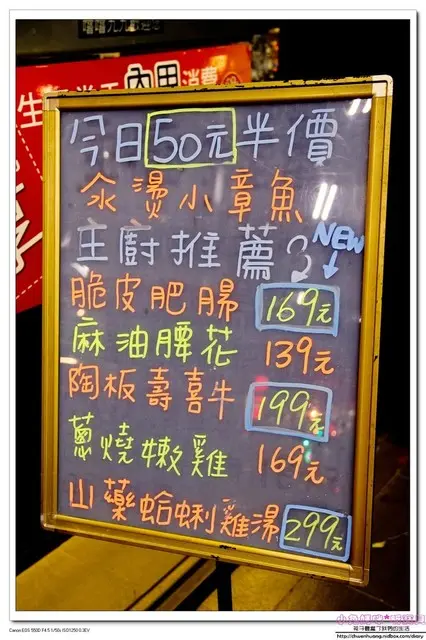 內用
消費
今日50元半價
汆燙小章魚!!
主廚推薦
NEW
脆皮肥腸 169元
麻油腰花 139元
陶板壽喜牛 199元
蔥燒嫩雞 169元
山藥蛤蜊雞湯 299元
Canon EOS 550D F4.5 1/50s ISO1250 0.3EV
http://chuenhuang.nidbox.com/diary